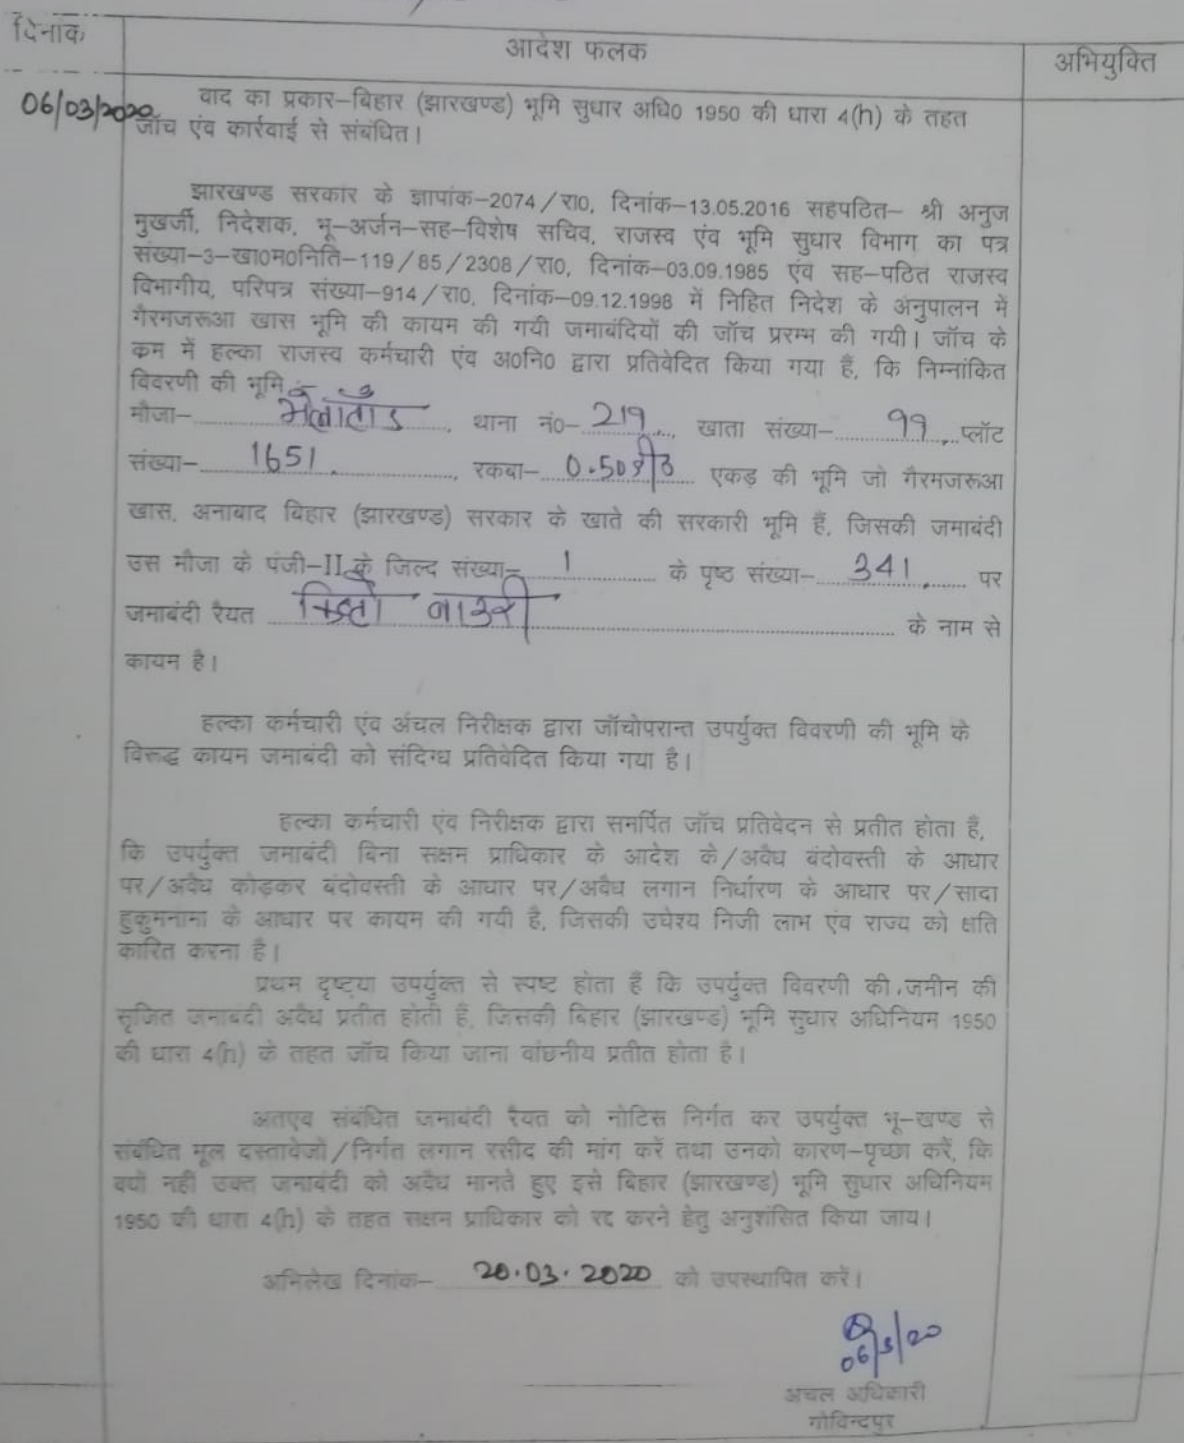 दिनांक
आदेश फलक
अभियुक्ति
06/03/2020
वाद का प्रकार–बिहार (झारखण्ड) भूमि सुधार अधि0 1950 की धारा 4(h) के तहत
जॉच एंव कार्रवाई से संबंधित।
झारखण्ड सरकार के ज्ञापांक–2074/रा0, दिनांक–13.05.2016 सहपटित– श्री अनुज
मुखर्जी, निदेशक, भू–अर्जन–सह–विशेष सचिव, राजस्व एंव भूमि सुधार विभाग का पत्र
संख्या–3–खा0म0निति–119/85/2308/रा0, दिनांक–03.09.1985 एंव सह–पठित राजस्व
विभागीय, परिपत्र संख्या–914/रा0, दिनांक–09.12.1998 में निहित निदेश के अनुपालन में
गैरमजरूआ खास भूमि की कायम की गयी जमाबंदियों की जॉच प्ररम्भ की गयी। जॉच के
क्रम में हल्का राजस्व कर्मचारी एंव अ0नि0 द्वारा प्रतिवेदित किया गया हैं, कि निम्नांकित
विवरणी की भूमि
मौजा– भेलाटाँड, थाना नं0– 219, खाता संख्या– 99, प्लॉट
संख्या– 1651, रकबा– 0.50 एकड़ की भूमि जो गैरमजरूआ
खास, अनाबाद बिहार (झारखण्ड) सरकार के खाते की सरकारी भूमि हैं, जिसकी जमाबंदी
उस मौजा के पंजी–II के जिल्द संख्या– 1 के पृष्ठ संख्या– 341 पर
जमाबंदी रैयत बाउरी के नाम से
कायम है।
हल्का कर्मचारी एंव अंचल निरीक्षक द्वारा जॉचोपरान्त उपर्युक्त विवरणी की भूमि के
विरूद्ध कायम जमाबंदी को संदिग्ध प्रतिवेदित किया गया है।
हल्का कर्मचारी एंव निरीक्षक द्वारा समर्पित जॉच प्रतिवेदन से प्रतीत होता हैं,
कि उपर्युक्त जमाबंदी बिना सक्षम प्राधिकार के आदेश के/अवैध बंदोवस्ती के आधार
पर/अवैध कोड़कर बंदोवस्ती के आधार पर/अवैध लगान निर्धारण के आधार पर/सादा
हुकुमनामा के आधार पर कायम की गयी है, जिसकी उघेश्य निजी लाभ एंव राज्य को क्षति
कारित करना है।
प्रथम दृष्ट्या उपर्युक्त से स्पष्ट होता हैं कि उपर्युक्त विवरणी की जमीन की
सृजित जमाबंदी अवैध प्रतीत होती हैं, जिसकी बिहार (झारखण्ड) भूमि सुधार अधिनियम 1950
की धारा 4(h) के तहत जॉच किया जाना वांछनीय प्रतीत होता है।
अतएव संबंधित जमाबंदी रैयत को नोटिस निर्गत कर उपर्युक्त भू–खण्ड से
संबंधित मूल दस्तावेजों/निर्गत लगान रसीद की मांग करें तथा उनको कारण–पृच्छा करें, कि
क्यों नहीं उक्त जमाबंदी को अवैध मानते हुए इसे बिहार (झारखण्ड) भूमि सुधार अधिनियम
1950 की धारा 4(h) के तहत सक्षम प्राधिकार को रद्द करने हेतु अनुशंसित किया जाय।
अभिलेख दिनांक– 20.03.2020 को उपस्थापित करें।
06/3/20
अंचल अधिकारी
गोविन्दपुर